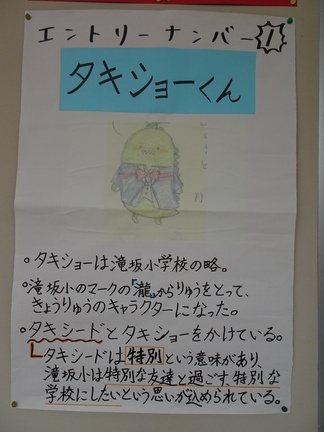 エントリーナンバー1
タキショーくん
・タキショーは滝坂小学校の略。
・滝坂小のマークの「瀧」からりゅうをとって、
きょうりゅうのキャラクターになった。
・タキシードとタキショーをかけている。
タキシードは特別という意味があり、
滝坂小は特別な友達と過ごす、特別な
学校にしたいという思いが込められている。